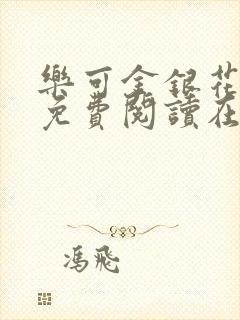 樂可金銀花
免費閱讀在
馮飛